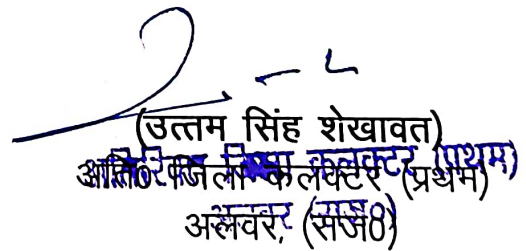 (उत्तम सिंह शेखावत)
अति० जिला कलक्टर (प्रथम)
अलवर, (राज०)